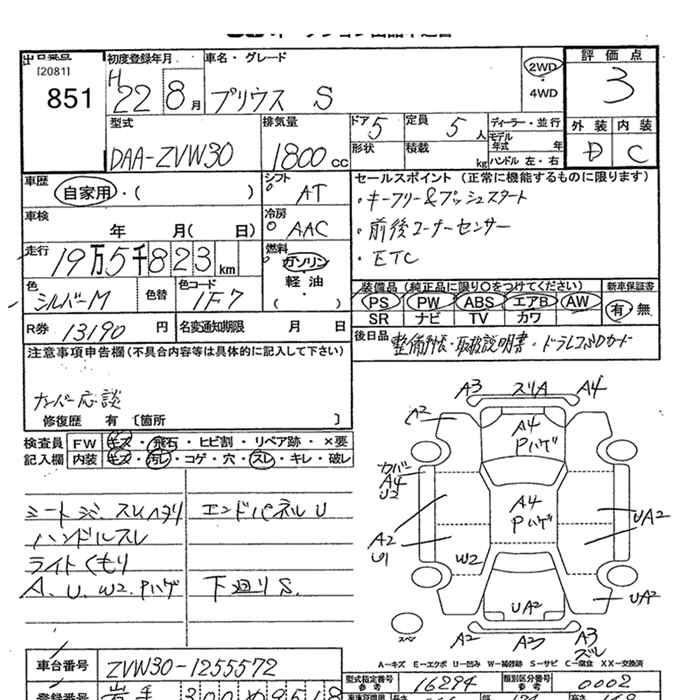 [2081]
851
初度登録年月
H 22 8 月
車名・グレード
プリウス S
2WD
4WD
評価点
3
外装 内装
D C
型式
DAA-ZVW30
排気量
1800 cc
ドア 5
定員 5 人
形状
積載 kg
ディーラー・並行
モデル年式 年
ハンドル 左・右
車歴
自家用・( )
シフト
AT
車検
年 月( 日)
冷房
AAC
走行
19万5千823 km
燃料
ガソリン
軽油
( ・ )
色
シルバーM
色替
色コード
1F7
R券 13190 円
名変通知期限 月 日
セールスポイント (正常に機能するものに限ります)
・キーフリー&プッシュスタート
・前後コーナーセンサー
・ETC
装備品 (純正品に限り○をつけてください)
PS PW ABS エアB AW
SR ナビ TV カワ
新車保証書
有・無
後日品
整備手帳・取扱説明書・ドラレコSDカード
注意事項申告欄(不具合内容等は具体的に記入して下さい)
ナンバー応談
修復歴 有 〔箇所 〕
検査員
記入欄
FW キズ・飛石・ヒビ割・リペア跡・×要
内装 キズ・汚レ・コゲ・穴・スレ・キレ・破レ
シートシミ、スレ、ヘタリ
エンドパネルU
ハンドルスレ
ライトくもり
A、U、W2、Pハゲ
下廻りS.
A3 スリA A4
A2
A4
Pハゲ
カバー
A4
U2
A4
Pハゲ
UA2
A2
U1
W2
UA2
UA2
スペア
A2 A3 A3
ズレ
A-キズ E-エクボ U-凹み W-補修跡 S-サビ C-腐食 XX-交換済
車台番号
ZVW30-1255572
型式指定番号
参考
16294
類別区分番号
参考
0002
登録番号
岩手 300 め 9518